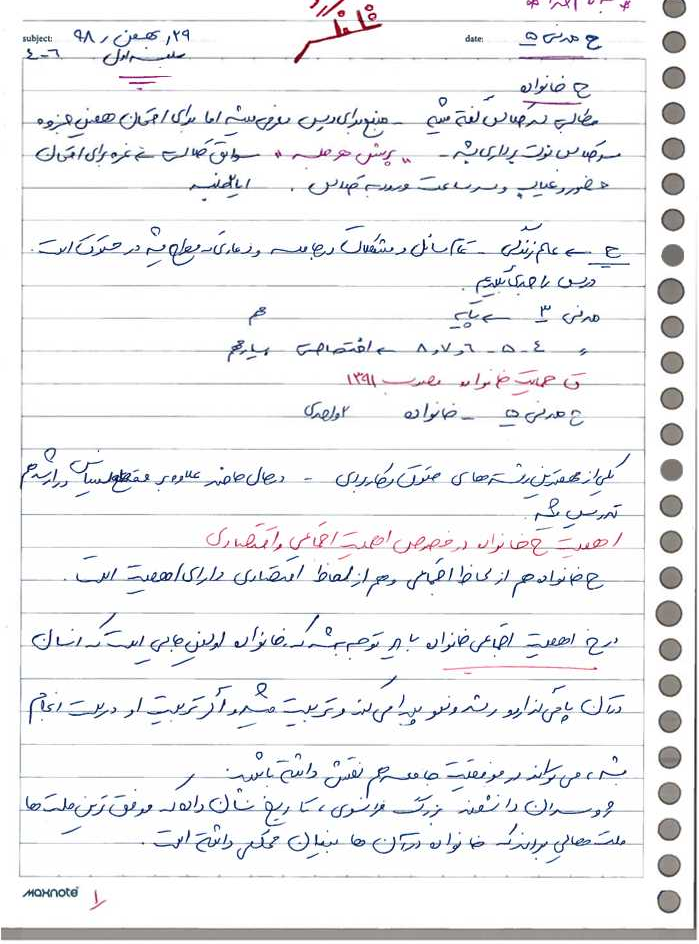 subject: ۲۹ بهمن ۹۸ date: ح مدنی ۵
جلسه اول ۶-۴
ح خانواده
مطالب که کلاس گفته میشه - منبع برای درس معرفی میشه اما برای امتحان همین جزوه
سر کلاس نوت برداری بشه - "پرسش هر جلسه" سوابق کلاسی نمره برای امتحان
حضور و غیاب و سر ساعت ورود به کلاس.
ح ← علم زندگی - تمام مسائل و مشکلات در جامعه و دعاوی که مطرح میشه در حقوق است.
درس را جدی بگیریم.
مدنی ۳ ← پایه مهم
〃 ۴-۵-۶ و ۷ و ۸ ← اختصاصی بسیار مهم
ق حمایت خانواده مصوب ۱۳۹۱
ح مدنی ۵ - خانواده ۲ واحدی
یکی از مهمترین رشته های حقوق و کاربردی - در حال حاضر علاوه بر مقطع لیسانس در ارشد هم
تدریس میشه.
اهمیت ح خانواده در خصوص اهمیت اجتماعی و اقتصادی
ح خانواده هم از لحاظ اجتماعی و هم از لحاظ اقتصادی دارای اهمیت است.
در خ اهمیت اجتماعی خانواده باید توجه بشه که خانواده اولین جایی است که انسان
در آن پا می گذارد و رشد و نمو پیدا می کند و تربیت میشه و اگر تربیت او درست انجام
بشه، می تواند در موفقیت جامعه هم نقش داشته باشد.
ژوسران دانشمند بزرگ فرانسوی، تاریخ نشان داده که موفق ترین ملت ها
ملت هایی بودند که خانواده در آن ها بنیان محکمی داشته است.
maxnote ۱